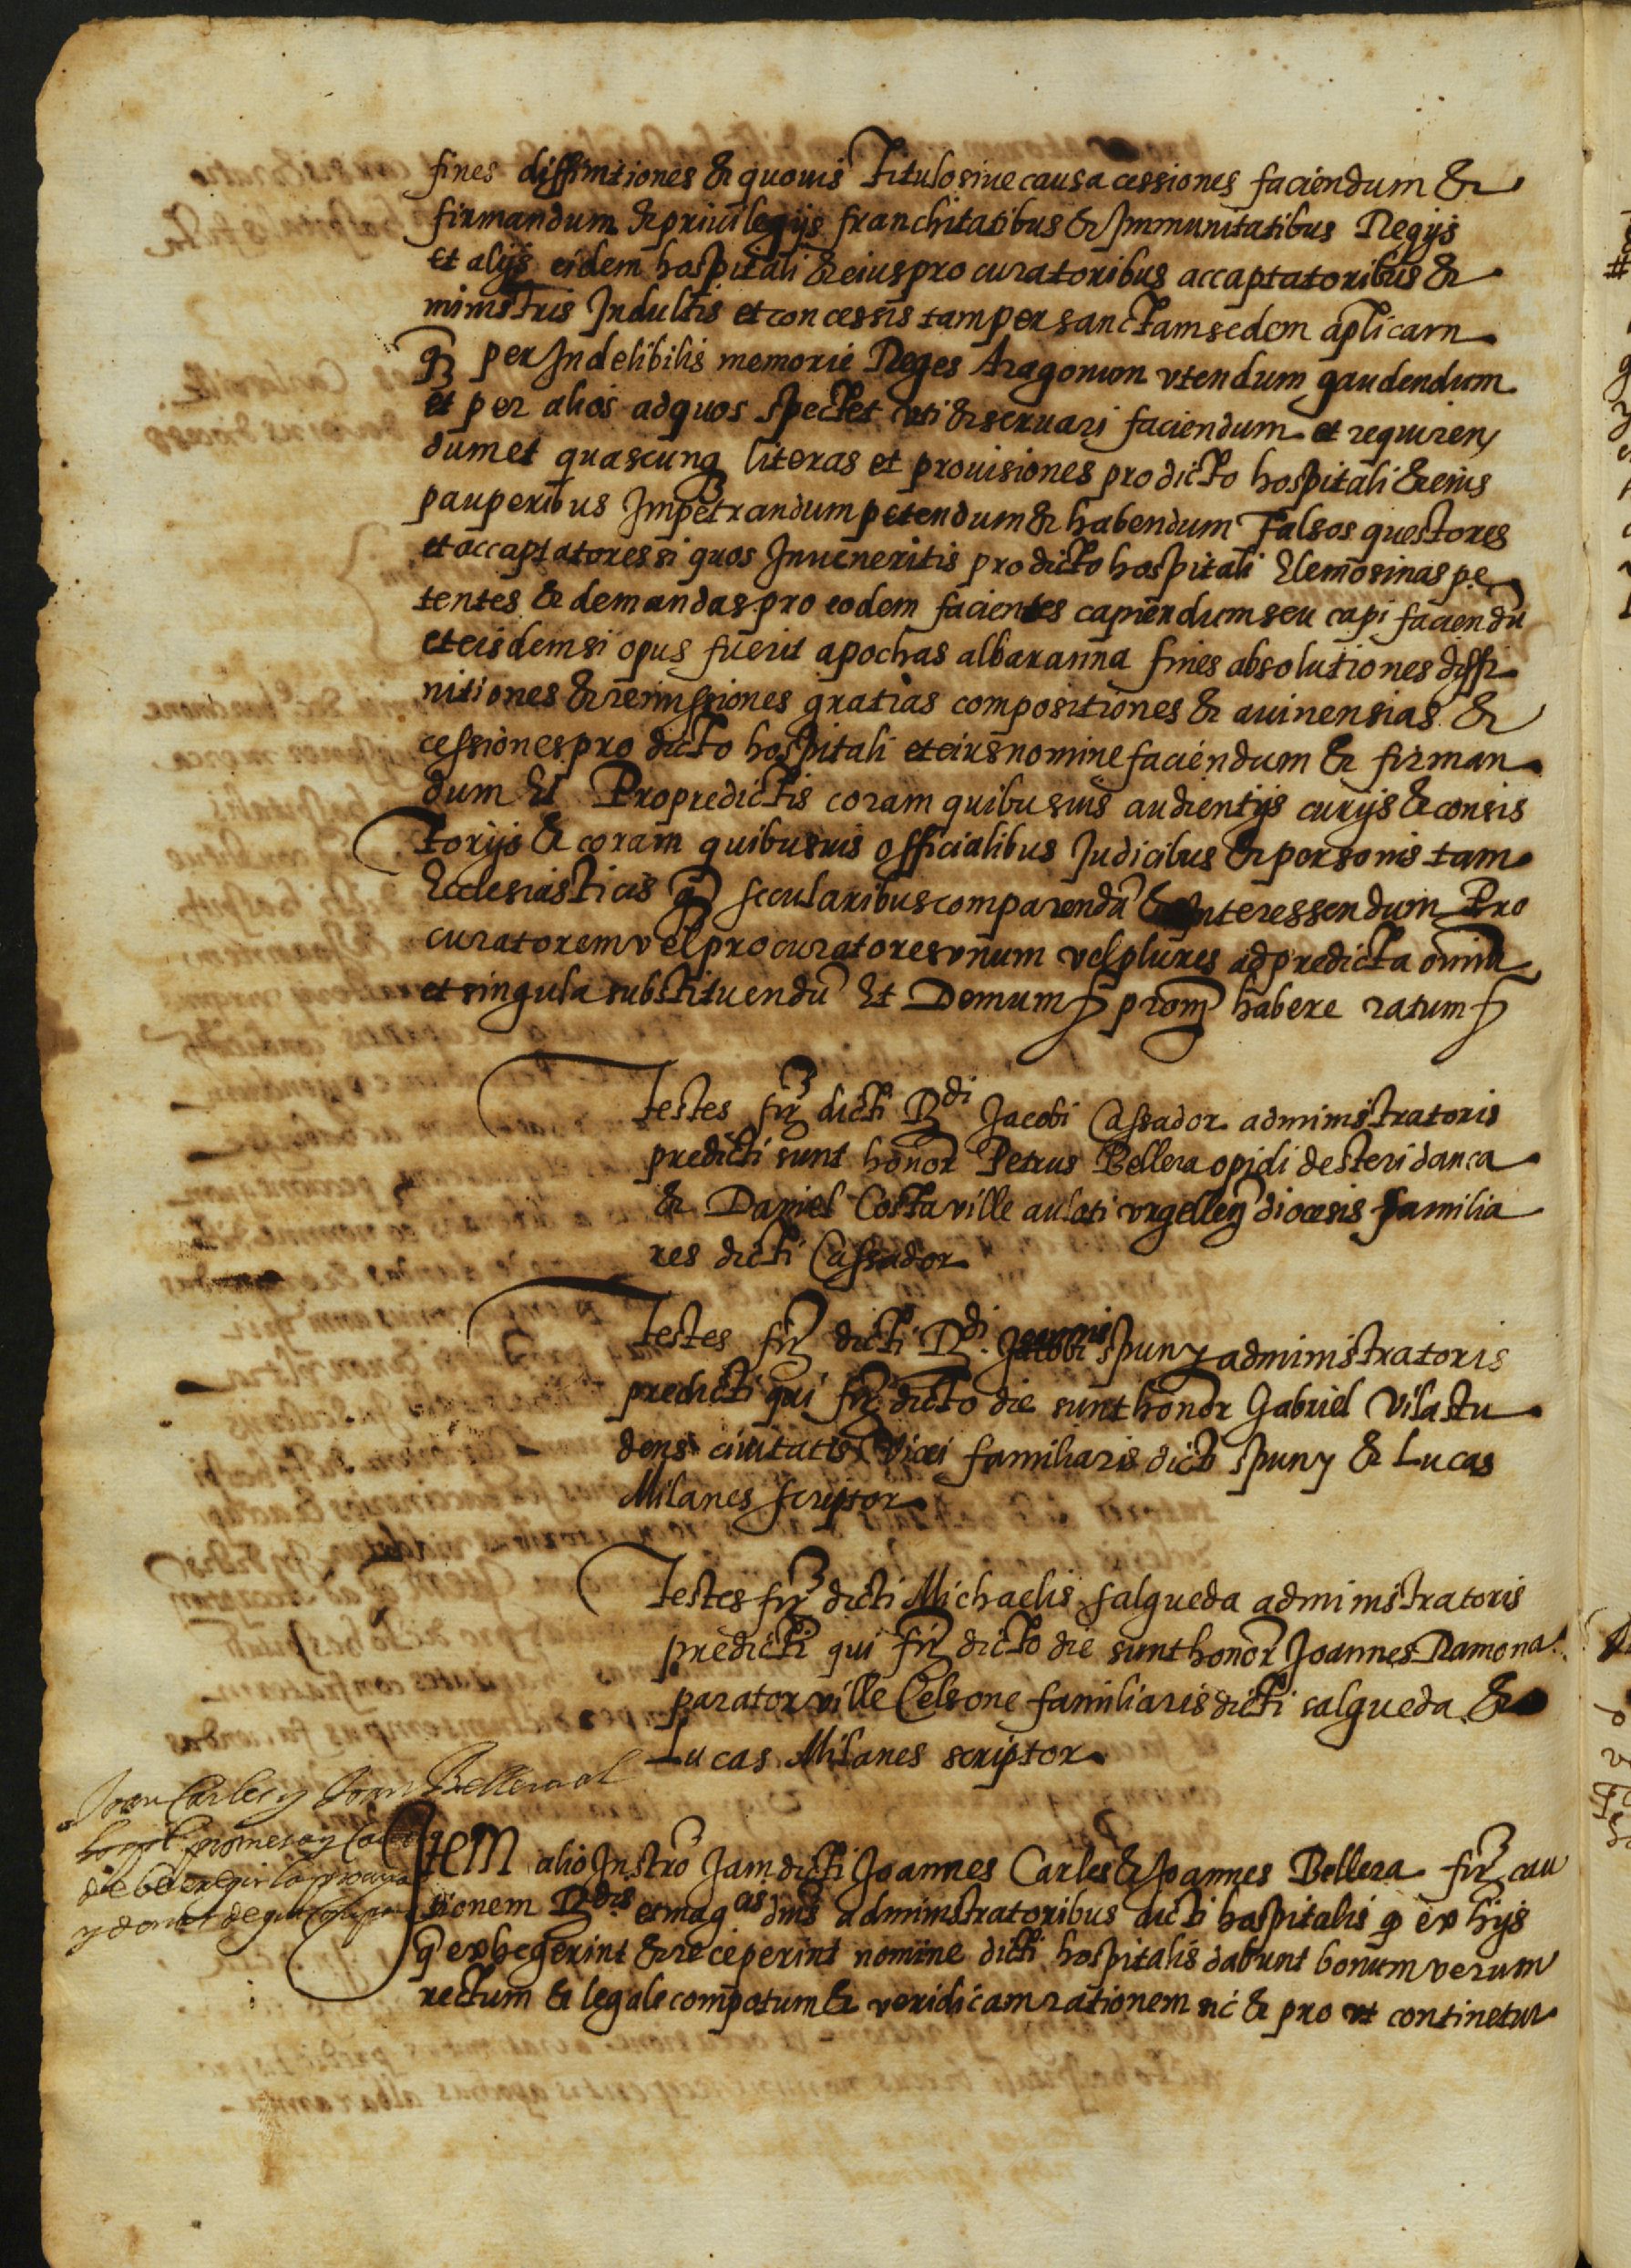 fines diffinitiones & quovis Titulo sive causa cessiones faciendum &
firmandum & privilegijs franchitatibus & Immunitatibus Regijs
et alijs eidem hospitali & eius procuratoribus accaptatoribus &
ministris Indultis et concessis tam per sanctam sedem aplicam
q̃ per Indelibilis memorie Reges Aragonum utendum gaudendum
et per alios ad quos spectet uti & servari faciendum et requiren
dum et quascunq literas et provisiones pro dicto hospitali & eius
pauperibus Impetrandum petendum & habendum Falsos questores
et accaptatores si quos Inveneritis pro dicto hospitali Elemosinas pe
tentes & demandas pro eodem facientes capiendum seu capi faciendũ
et eisdem si opus fuerit apochas albaranna fines absolutiones diffi
nitiones & remissiones gratias compositiones & avinensias &
cessiones pro dicto hospitali et eius nomine faciendum & firman
dum Et Pro predictis coram quibusvis audientijs curijs & consis
torijs & coram quibusvis officialibus Judicibus & personis tam
Ecclesiasticis q̃ secularibus comparendũ & Interessendum Pro
curatorem vel procuratores unum vel plures ad predicta omnia
et singula substituendũ Et Demum prom habere ratum
Testes fir dicti Rdi Jacobi Cassador administratoris
predicti sunt honor Petrus Bellera opidi de steridanea
& Daniel Costa ville auloti urgelleñ diocesis familia
res dicti Cassador
Testes fir dicti Rdi Joannis spuny administratoris
predicti qui fir dicto die sunt honor Gabriel Vila stu
dens civitatis Vicci familiaris dicti spuny & Lucas
Milanes scriptor
Testes fir dicti Michaelis salgueda administratoris
predicti qui fir dicto die sunt honor Joannes Ramona
parator ville Celsone familiaris dicti salgueda &
Lucas Milanes scriptor
Joan Carles y Joan Bellera al
hospl prometan
de be
y donar de
Item alio Instro Jam dicti Joannes Carles & Joannes Bellera fir cau
tionem Rdis et magcis dnis administratoribus dicti hospitalis q ex hijs
q exhegerint & receperint nomine dicti hospitalis dabunt bonum verum
rectum & legale compotum & veridicam rationem sic & pro ut continetur